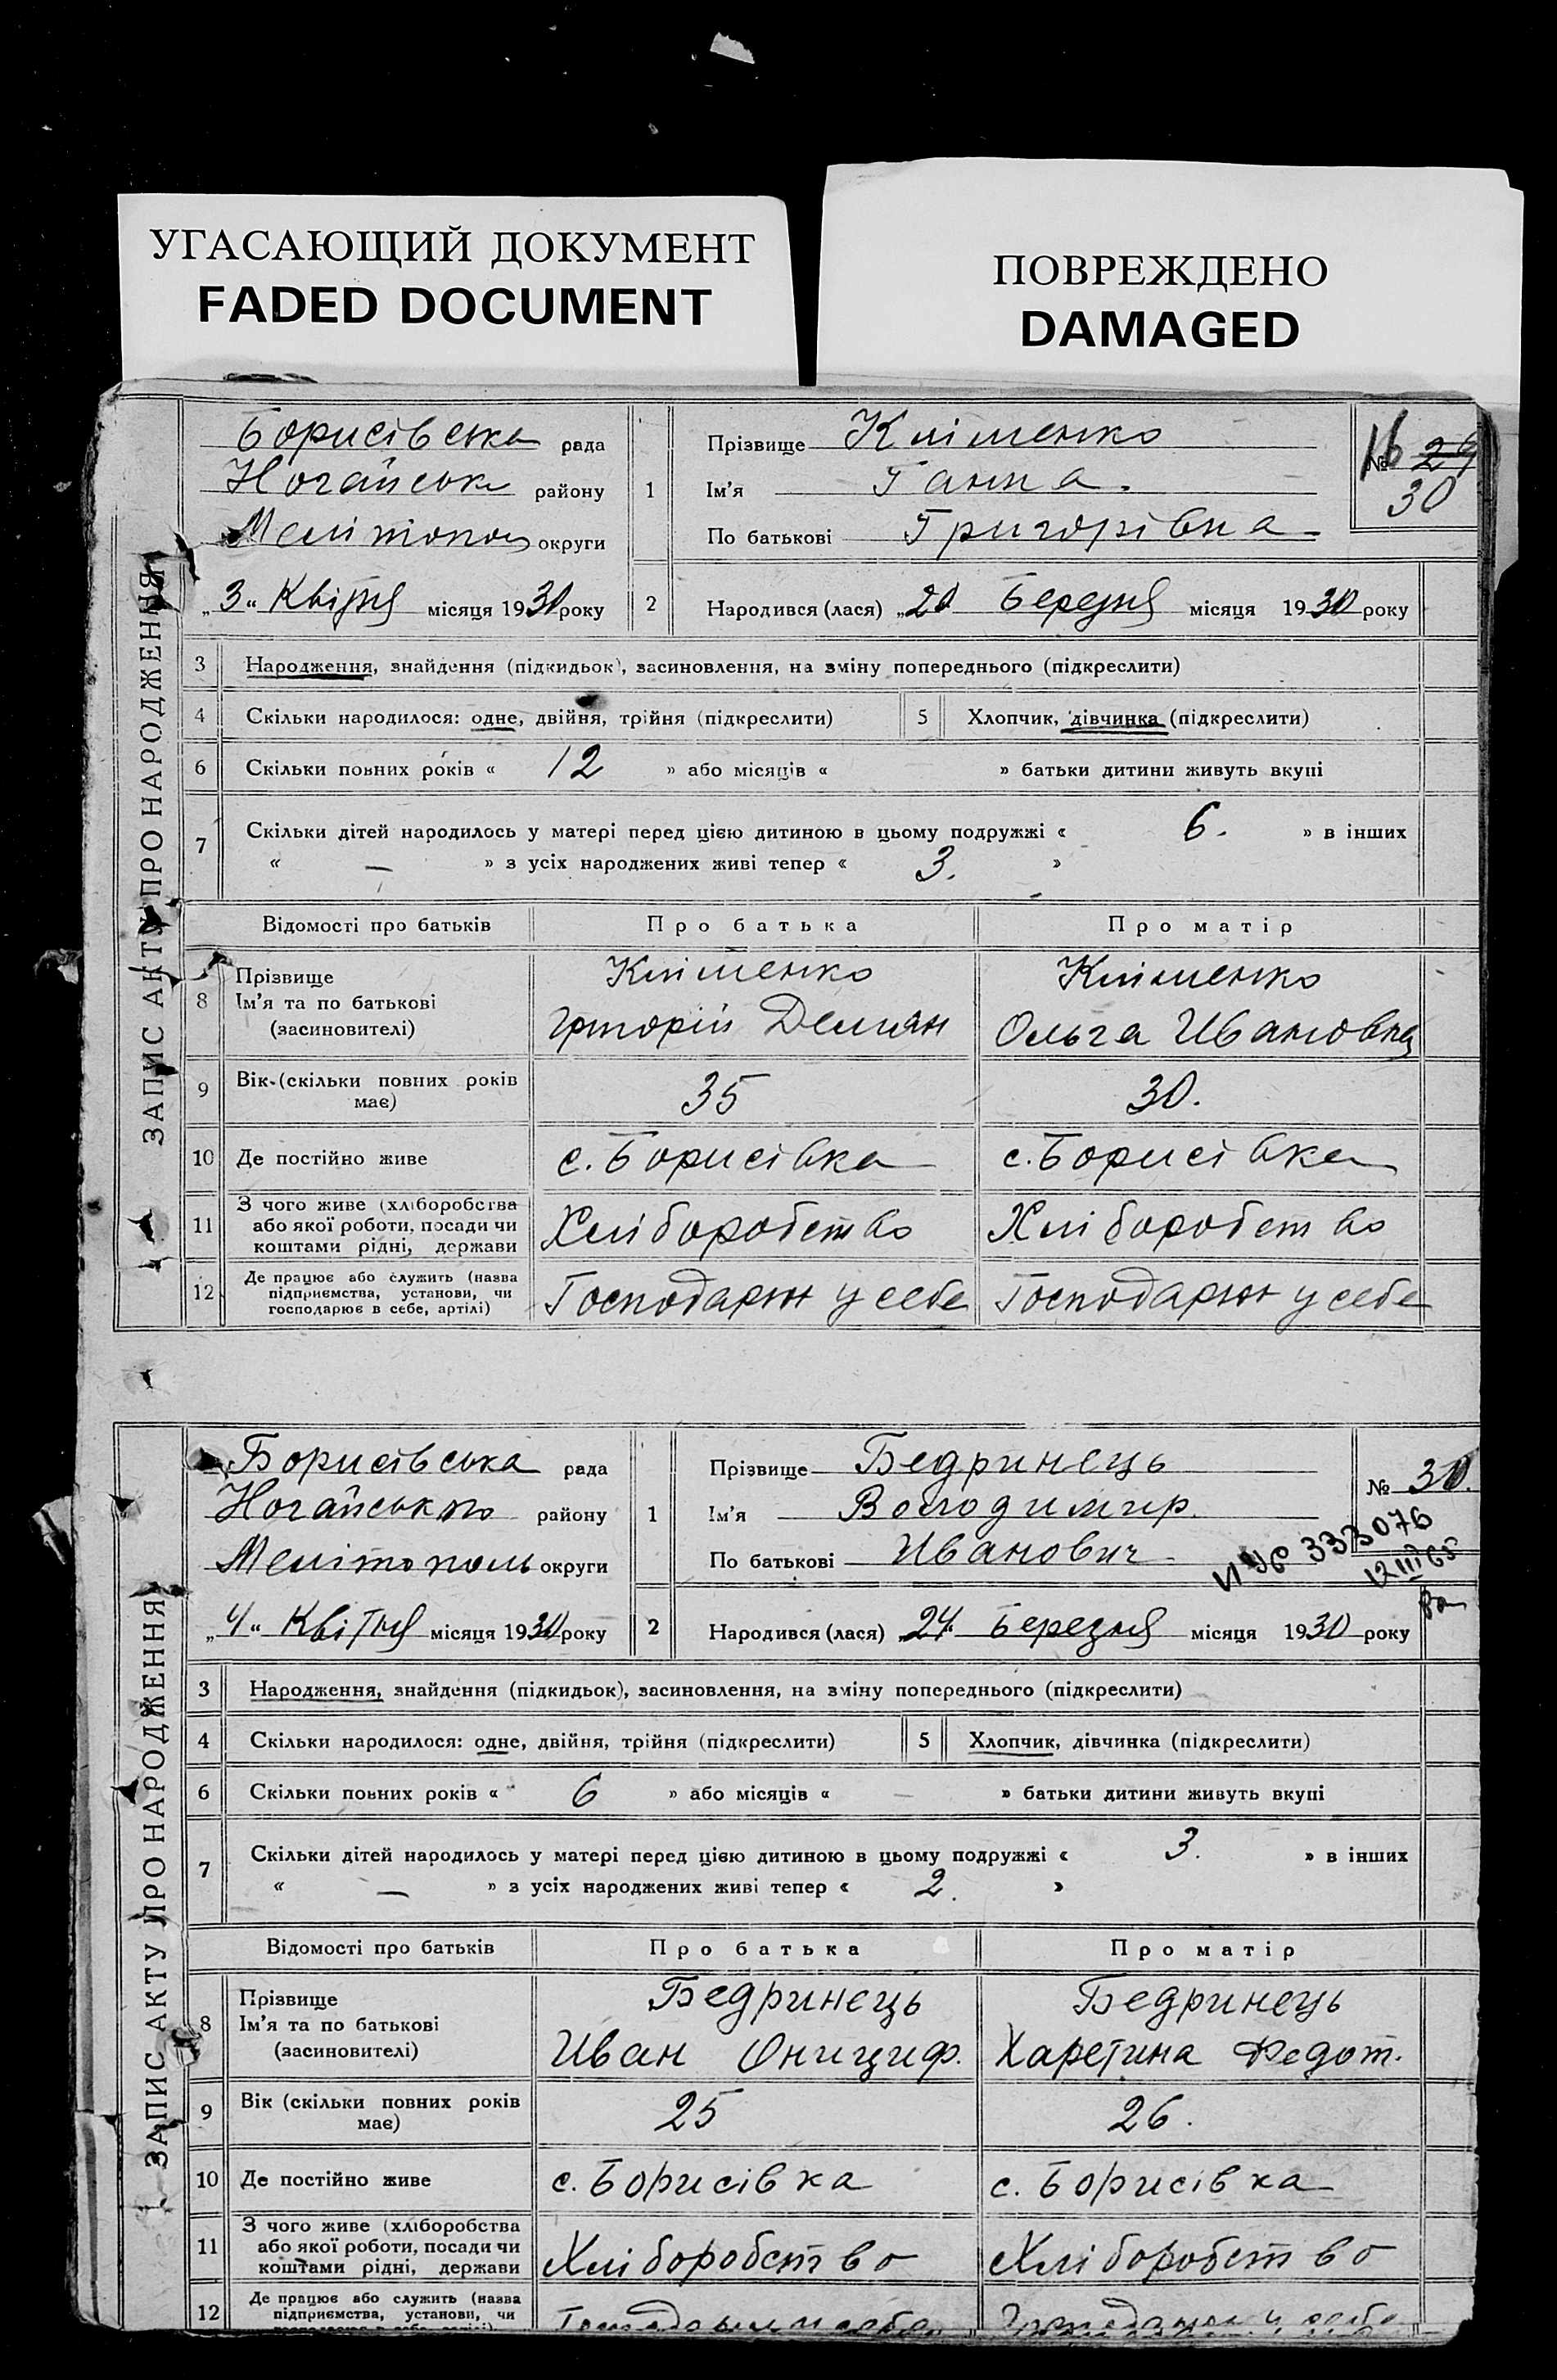 УГАСАЮЩИЙ ДОКУМЕНТ
FADED DOCUMENT
ПОВРЕЖДЕНО
DAMAGED
ЗАПИС АКТУ ПРО НАРОДЖЕННЯ
Борисівська рада
Ногайськ району
Мелітополь округи
„3“ Квітня місяця 1930 року
1
Прізвище Кліменко
Ім’я Ганна.
По батькові Григорівна
№ 16 29
30
2 Народився (лася) „20 Березня місяця 1930 року
3 Народження, знайдення (підкидьок), засиновлення, на зміну попереднього (підкреслити)
4 Скільки народилося: одне, двійня, трійня (підкреслити) 5 Хлопчик, дівчинка (підкреслити)
6 Скільки повних років « 12 » або місяців « » батьки дитини живуть вкупі
7 Скільки дітей народилось у матері перед цією дитиною в цьому подружжі « 6. » в інших
« — » з усіх народжених живі тепер « 3. »
Відомості про батьків Про батька Про матір
8 Прізвище
Ім’я та по батькові
(засиновителі)
Кліменко
Григорій Демян
Кліменко
Ольга Ивановна
9 Вік (скільки повних років має) 35 30.
10 Де постійно живе с. Борисівка с. Борисівка
11 З чого живе (хліборобства
або якої роботи, посади чи
коштами рідні, держави
Хліборобство Хліборобство
12 Де працює або служить (назва
підприємства, установи, чи
господарює в себе, артілі)
Господарюн у себе Господарюн у себе
ЗАПИС АКТУ ПРО НАРОДЖЕННЯ
Борисівська рада
Ногайського району
Мелітополь округи
„4“ Квітня місяця 1930 року
1
Прізвище Бедринець
Ім’я Володимир.
По батькові Иванович
№ 30.
333076
12 III 65
2 Народився (лася) „24. Березня місяця 1930 року
3 Народження, знайдення (підкидьок), засиновлення, на зміну попереднього (підкреслити)
4 Скільки народилося: одне, двійня, трійня (підкреслити) 5 Хлопчик, дівчинка (підкреслити)
6 Скільки повних років « 6 » або місяців « — » батьки дитини живуть вкупі
7 Скільки дітей народилось у матері перед цією дитиною в цьому подружжі « 3. » в інших
« — » з усіх народжених живі тепер « 2. »
Відомості про батьків Про батька Про матір
8 Прізвище
Ім’я та по батькові
(засиновителі)
Бедринець
Иван Онициф.
Бедринець
Харетина Федот.
9 Вік (скільки повних років має) 25 26.
10 Де постійно живе с. Борисівка с. Борисівка
11 З чого живе (хліборобства
або якої роботи, посади чи
коштами рідні, держави
Хліборобство Хліборобство
12 Де працює або служить (назва
підприємства, установи, чи